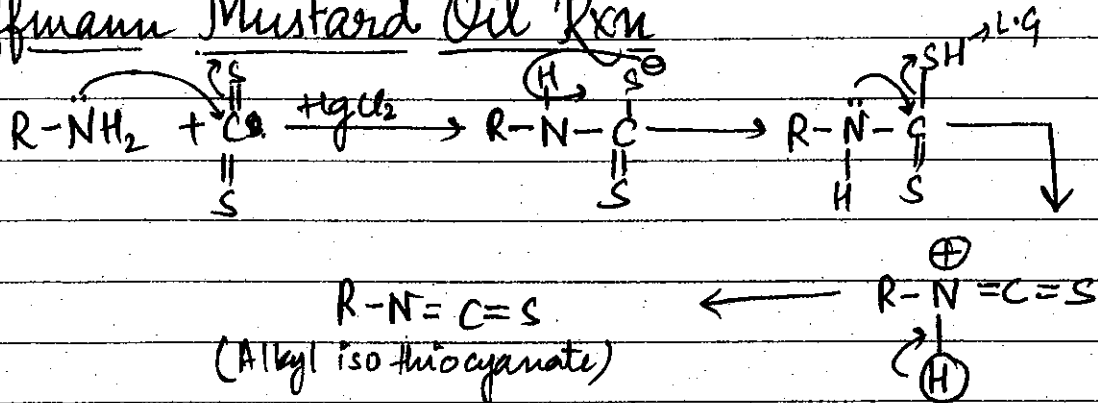 fmann Mustard Oil Rxn
R-N̈H₂ + C HgCl₂ → R-N-C → R-N̈-C
S S H S⊖ S SH → L.G H S
R-N=C=S ← R-N⊕=C=S
(Alkyl isothiocyanate) H